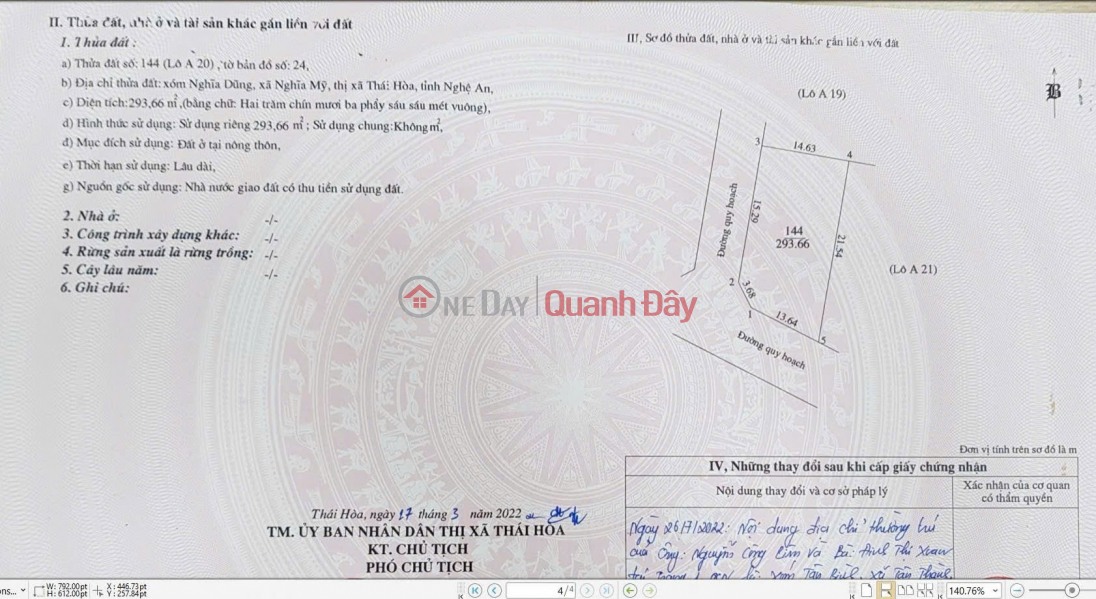 II. Thửa đất, nhà ở và tài sản khác gắn liền với đất
1. Thửa đất :
a) Thửa đất số: 144 (Lô A 20) , tờ bản đồ số: 24,
b) Địa chỉ thửa đất: xóm Nghĩa Dũng, xã Nghĩa Mỹ, thị xã Thái Hòa, tỉnh Nghệ An,
c) Diện tích:293,66 m²,(bằng chữ: Hai trăm chín mươi ba phẩy sáu sáu mét vuông),
d) Hình thức sử dụng: Sử dụng riêng 293,66 m² ; Sử dụng chung:Không m²,
đ) Mục đích sử dụng: Đất ở tại nông thôn,
e) Thời hạn sử dụng: Lâu dài,
g) Nguồn gốc sử dụng: Nhà nước giao đất có thu tiền sử dụng đất.
2. Nhà ở: -/-
3. Công trình xây dựng khác: -/-
4. Rừng sản xuất là rừng trồng: -/-
5. Cây lâu năm: -/-
6. Ghi chú:
III, Sơ đồ thửa đất, nhà ở và tài sản khác gắn liền với đất
(Lô A 19)
B
3
14.63
4
Đường quy hoạch
15.29
144
293.66
21.54
(Lô A 21)
2
3.68
1
13.64
5
Đường quy hoạch
ONE DAY Quanh Đây
Đơn vị tính trên sơ đồ là m
IV, Những thay đổi sau khi cấp giấy chứng nhận
Nội dung thay đổi và cơ sở pháp lý
Xác nhận của cơ quan
có thẩm quyền
Ngày 26/7/2022: Nội dung địa chỉ thường trú
của Ông: Nguyễn Công
Tân Thành,
Thái Hòa, ngày 17 tháng 3 năm 2022
TM. ỦY BAN NHÂN DÂN THỊ XÃ THÁI HÒA
KT. CHỦ TỊCH
PHÓ CHỦ TỊCH
ns...
W: 792.00pt
H: 612.00pt
X: 446.73pt
Y: 257.84pt
4/4
140.76%